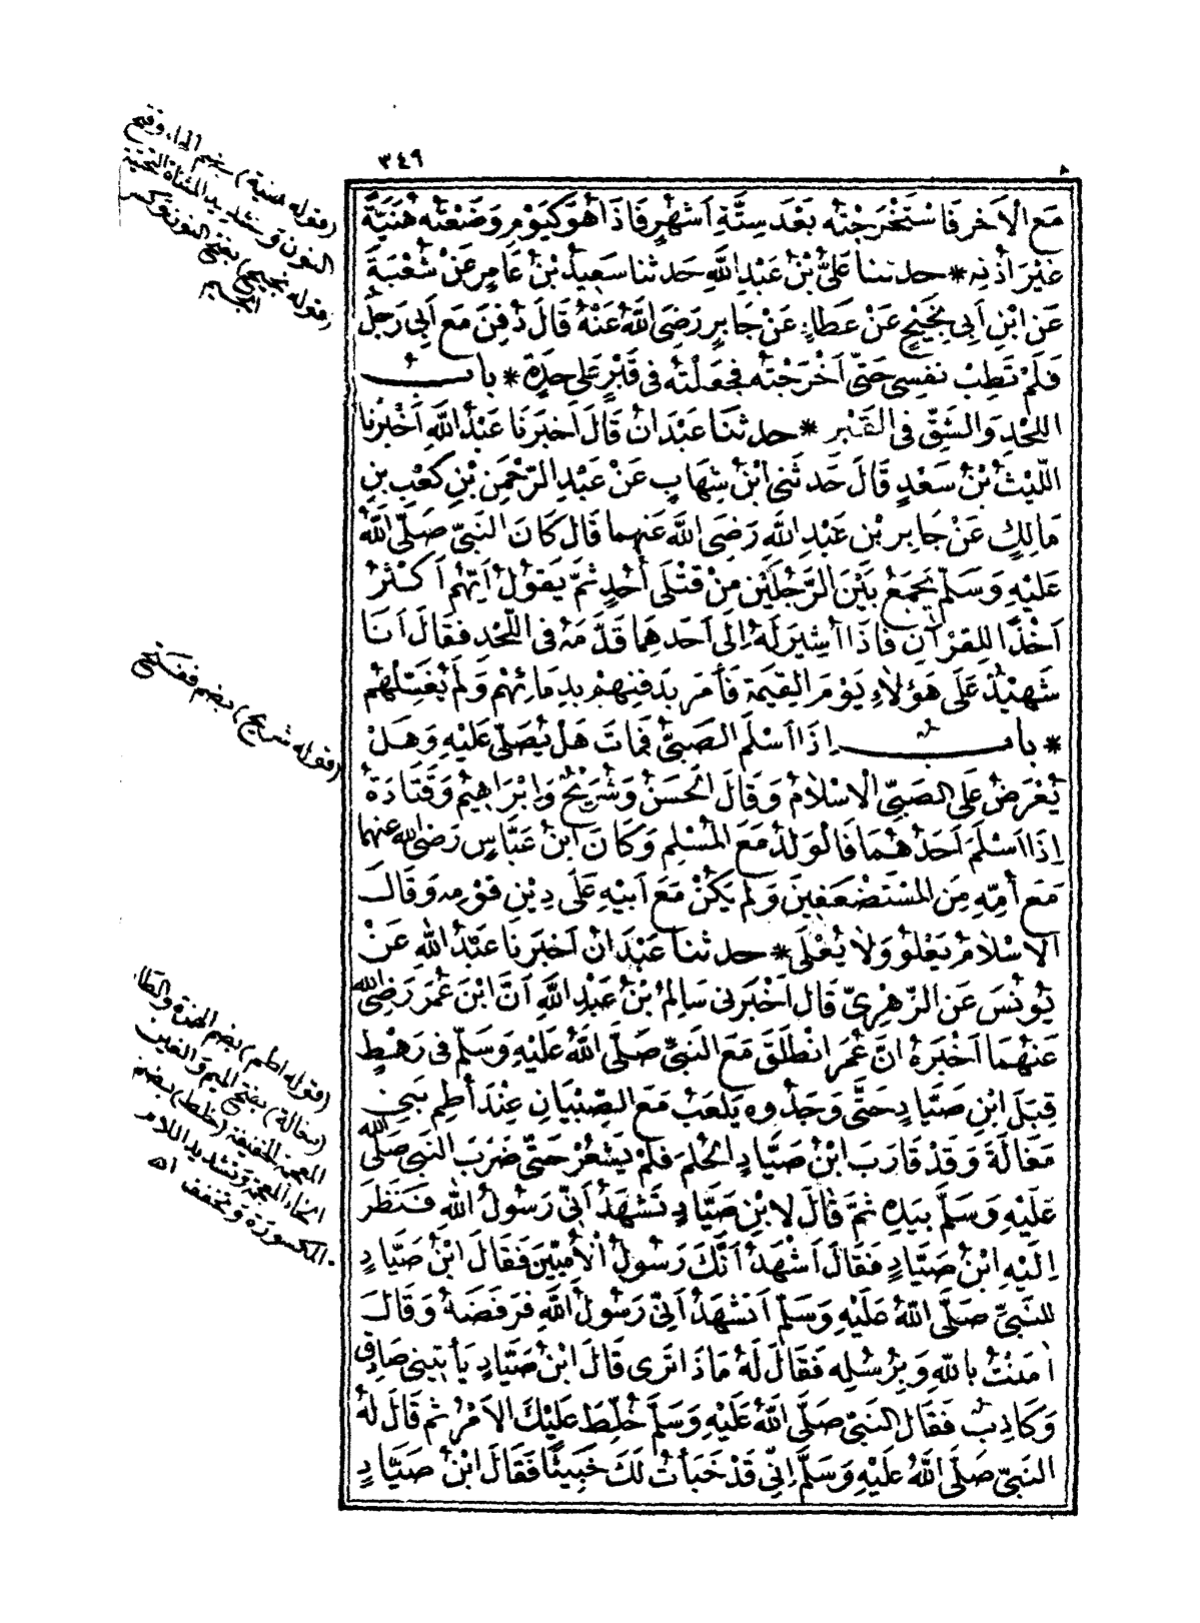 ٣٤٩
مَعَ الْآخَرِ فَاسْتَخْرَجْتُهُ بَعْدَ سِتَّةِ اَشْهُرٍ فَاِذَا هُوَ كَيَوْمِ وَضَعْتُهُ هُنَيَّةً
غَيْرَ اُذُنِهِ * حدثنا عَلِىُّ بْنُ عَبْدِ اللّٰهِ حَدثنا سَعِيدُ بْنُ عَامِرٍ عَنْ شُعْبَةَ
عَنِ ابْنِ اَبِى نَجِيْحٍ عَنْ عَطَاءٍ عَنْ جَابِرٍ رَضِىَ اللّٰهُ عَنْهُ قَالَ دُفِنَ مَعَ اَبِى رَجُلٌ
فَلَمْ تَطِبْ نَفْسِى حَتّٰى اَخْرَجْتُهُ فَجَعَلْتُهُ فِى قَبْرٍ عَلٰى حِدَةٍ * بابُ
اللَّحْدِ وَالشَّقِّ فِى القَبْرِ * حدثنا عَبْدَانُ قَالَ اَخبَرَنَا عَبْدُ اللّٰهِ اَخْبَرَنَا
اللَّيْثُ بْنُ سَعْدٍ قَالَ حَدثَنِى ابْنُ شِهَابٍ عَنْ عَبْدِ الرَّحْمٰنِ بْنِ كَعْبِ بنِ
مَالِكٍ عَنْ جَابِرِ بْنِ عَبْدِ اللّٰهِ رَضِىَ اللّٰه عَنهما قَالَ كَانَ النَّبِىُّ صَلَّى اللّٰهُ
عَلَيْهِ وَسَلَّمَ يَجْمَعُ بَيْنَ الرَّجُلَيْنِ مِنْ قَتْلٰى اُحُدٍ ثُمَّ يَقُولُ اَيُّهُمْ اَكْثَرُ
اَخْذًا لِلقُرْاٰنِ فَاِذَا اُشِيرَ لَهُ اِلَى اَحَدِهِمَا قَدَّمَهُ فِى اللَّحْدِ فقَالَ اَنَا
شَهِيْدٌ عَلَى هٰؤُلَاءِ يَوْمَ القِيٰمَةِ فَأَمَرَ بِدَفْنِهِمْ بِدِمَائِهِمْ وَلَمْ يُغَسِّلْهُمْ
* بابُ اِذَا اَسْلَمَ الصَّبِىُّ فَمَاتَ هَلْ يُصَلّٰى عَلَيْهِ وَهَلْ
يُعْرَضُ عَلَى الصَّبِىِّ الْاِسْلَامُ وَقَالَ الْحَسَنُ وَشُرَيْحٌ وَاِبْرَاهِيمُ وَقَتَادَةُ
اِذَا اَسْلَمَ اَحَدُهُمَا فَالْوَلَدُ مَعَ الْمُسْلِمِ وَكَانَ ابْنُ عَبَّاسٍ رَضِىَ اللّٰه عنهما
مَعَ اُمِّهِ مِنَ الْمُسْتَضْعَفِينَ وَلَمْ يَكُنْ مَعَ اَبِيْهِ عَلَى دِيْنِ قَوْمِهِ وَقَالَ
الْاِسْلَامُ يَعْلُو وَلَا يُعْلَى * حدثنا عَبْدَانُ اَخبَرَنَا عَبْدُ اللّٰهِ عَنْ
يُونُسَ عَنِ الزُّهْرِىِّ قَالَ اَخْبَرَنِى سَالِمُ بْنُ عَبْدِ اللّٰهِ اَنَّ ابْنَ عُمَرَ رَضِىَ اللّٰه
عَنْهُمَا اَخْبَرَهُ اَنَّ عُمَرَ انْطَلَقَ مَعَ النَّبِىِّ صَلَّى اللّٰهُ عَلَيْهِ وَسَلَّمَ فِى رَهْطٍ
قِبَلَ ابْنِ صَيَّادٍ حَتّٰى وَجَدُوهُ يَلْعَبُ مَعَ الصِّبْيَانِ عِنْدَ اُطُمِ بَنِى
مَغَالَةَ وَقَدْ قَارَبَ ابْنُ صَيَّادٍ الْحُلُمَ فَلَمْ يَشْعُرْ حَتّٰى ضَرَبَ النَّبِىُّ صَلَّى اللّٰه
عَلَيْهِ وَسَلَّمَ بِيَدِهِ ثُمَّ قَالَ لِابْنِ صَيَّادٍ تَشْهَدُ اَنِّى رَسُولُ اللّٰهِ فَنَظَرَ
اِلَيْهِ ابْنُ صَيَّادٍ فَقَالَ اَشْهَدُ اَنَّكَ رَسُولُ الْاُمِّيِّيْنَ فَقَالَ ابْنُ صَيَّادٍ
لِلنَّبِىِّ صَلَّى اللّٰهُ عَلَيْهِ وَسَلَّمَ اَتَشْهَدُ اَنِّى رَسُولُ اللّٰهِ فَرَفَضَهُ وَقَالَ
اٰمَنْتُ بِاللّٰهِ وَبِرُسُلِهِ فَقَالَ لَهُ مَاذَا تَرَى قَالَ ابْنُ صَيَّادٍ يَأْتِيْنِى صَادِقٌ
وَكَاذِبٌ فَقَالَ النَّبِىُّ صَلَّى اللّٰهُ عَلَيْهِ وَسَلَّمَ خُلِّطَ عَلَيْكَ الْاَمْرُ ثُمَّ قَالَ لَهُ
النَّبِىُّ صَلَّى اللّٰهُ عَلَيْهِ وَسَلَّمَ اِنِّى قَدْ خَبَأْتُ لَكَ خَبِيئًا فَقَالَ ابْنُ صَيَّادٍ
(قوله هنية) بضم الهاء وفتح
النون وتشديد المثناة التحتية
(قوله نجيح) بفتح النون وكسر
الجيم
(قوله شريح) بضم ففتح
(قوله اطم) بضم الهمزة والطاء
(مغالة) بفتح الميم والغين
المعجمة الخفيفة (خلط) بضم
الخاء المعجمة وتشديد اللام
المكسورة وتخفف اه